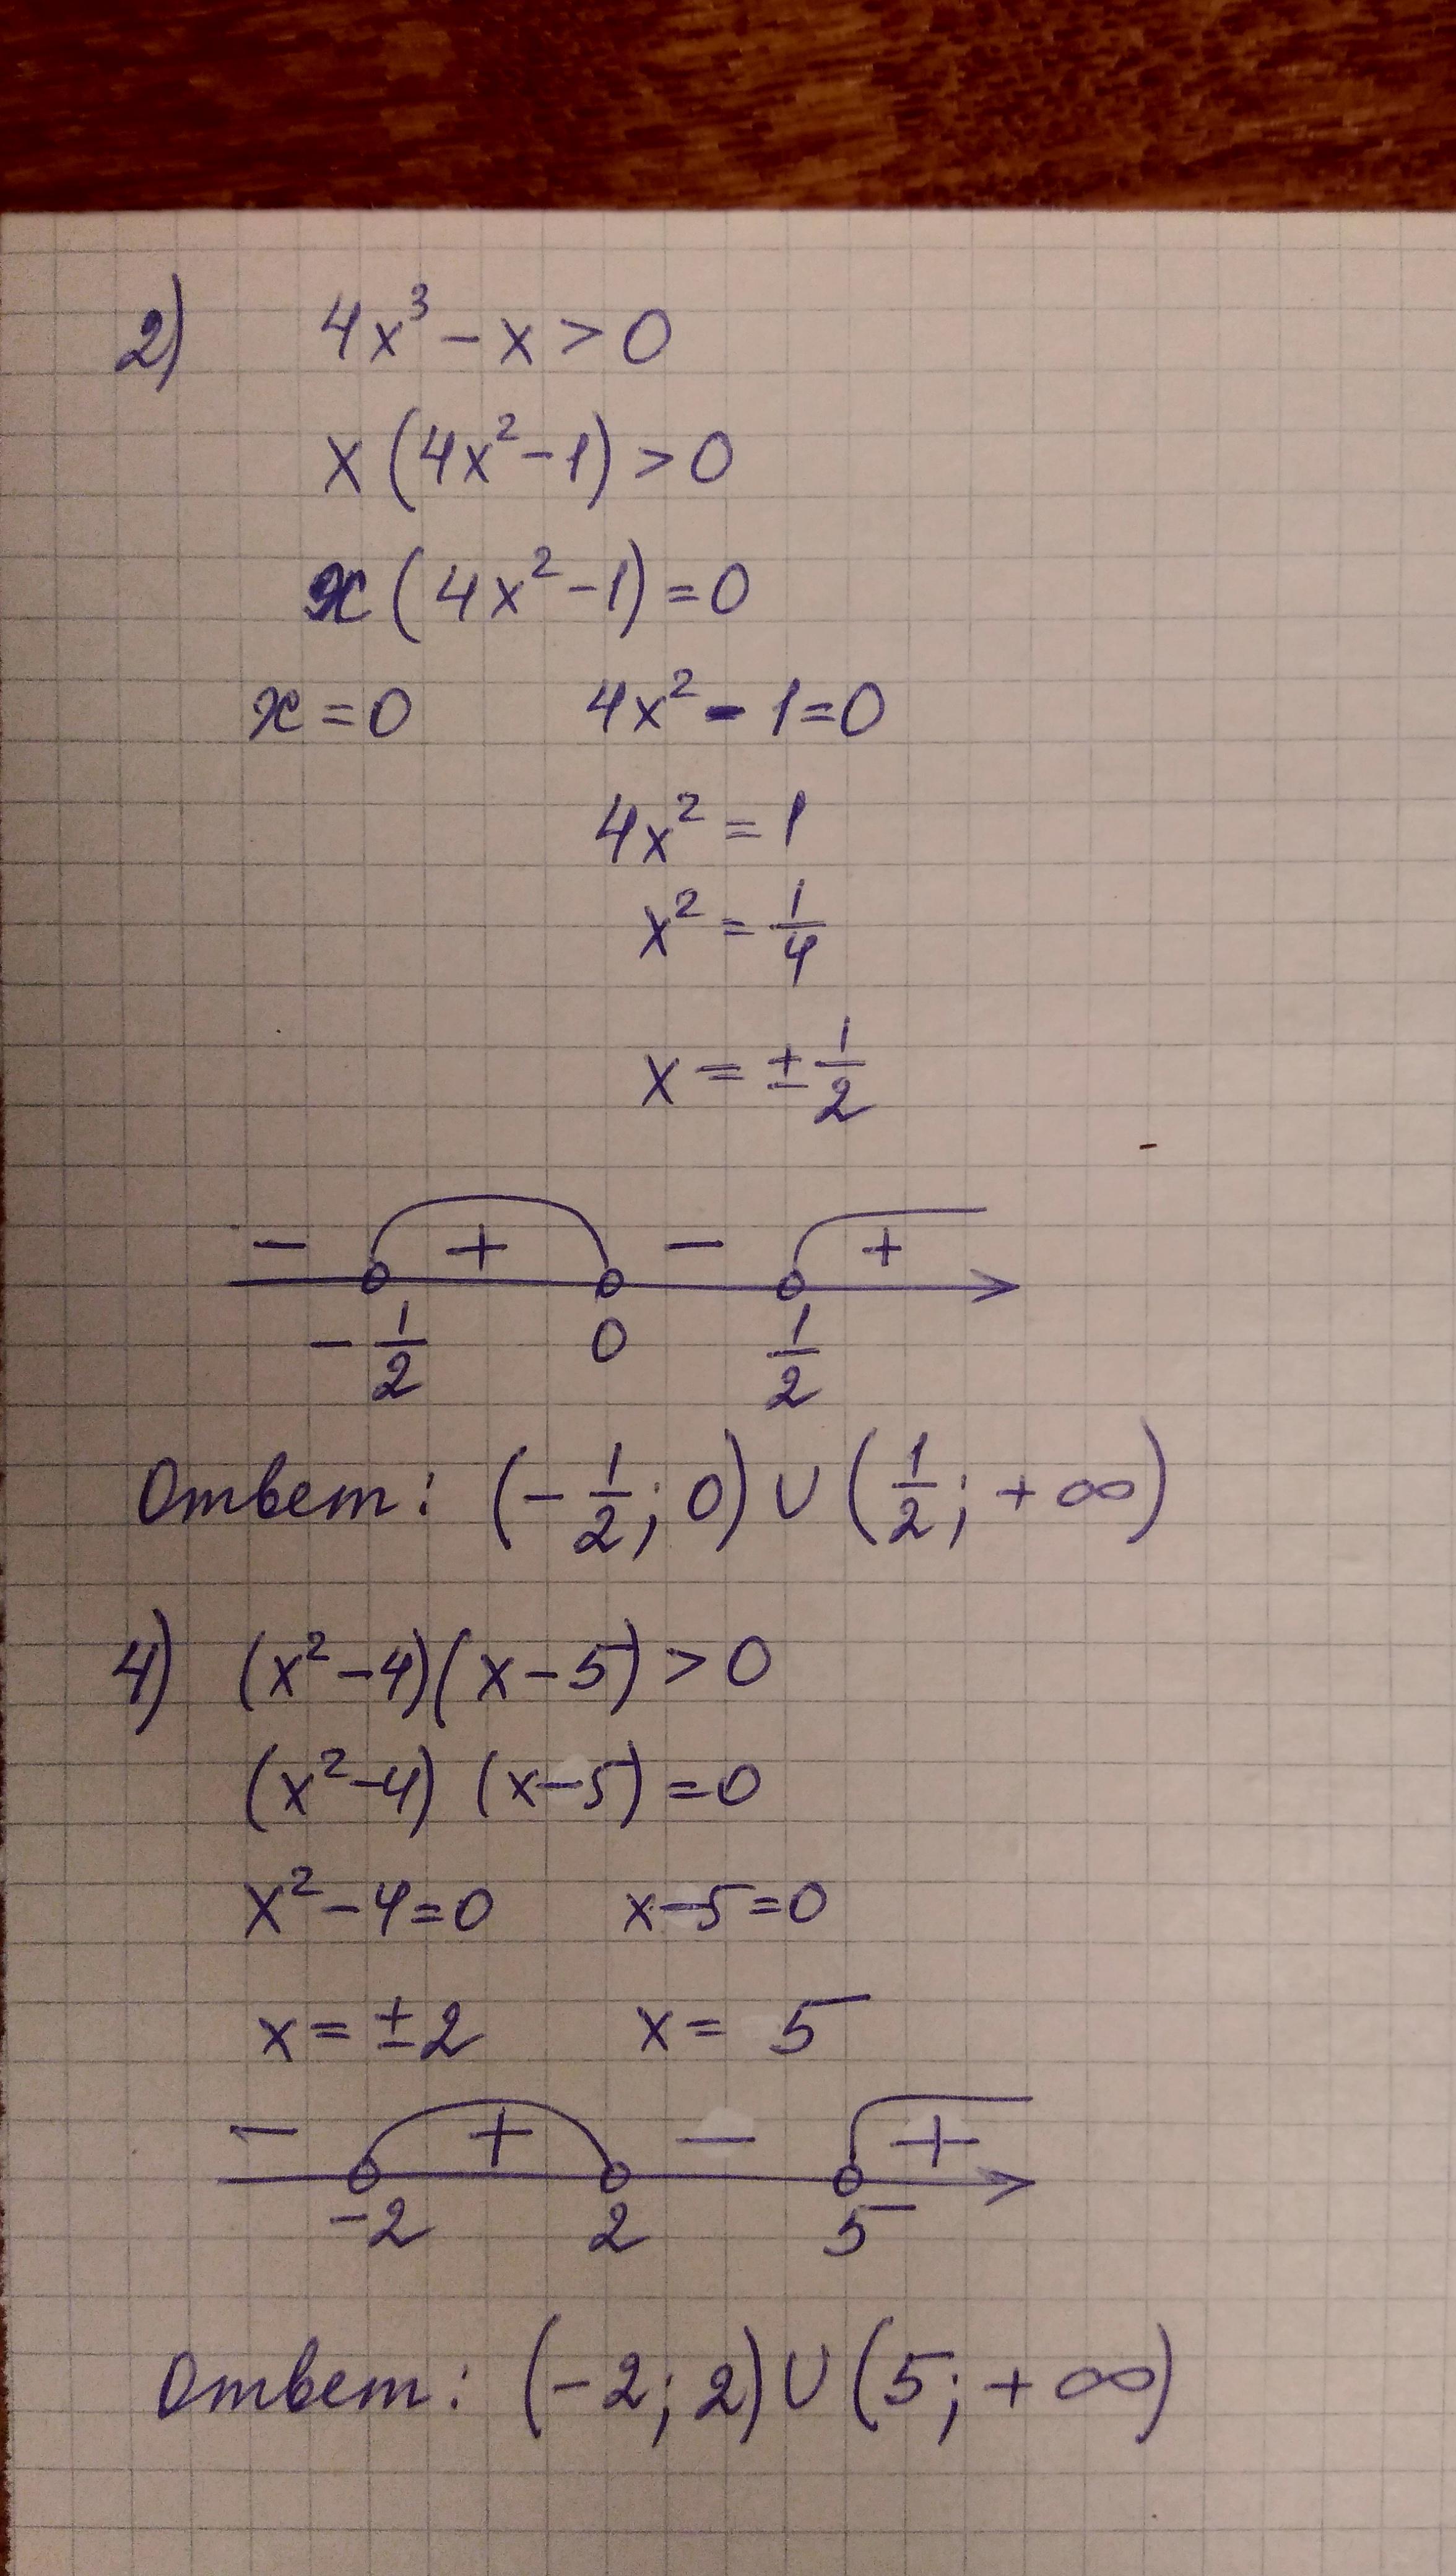 2) 4x³ - x > 0
x(4x² - 1) > 0
x(4x² - 1) = 0
x = 0 4x² - 1 = 0
4x² = 1
x² = 1/4
x = ± 1/2
- + - +
- 1/2 0 1/2
Ответ: (- 1/2; 0) ∪ (1/2; +∞)
4) (x² - 4)(x - 5) > 0
(x² - 4) (x - 5) = 0
x² - 4 = 0 x - 5 = 0
x = ± 2 x = 5
- + - +
-2 2 5
Ответ: (-2; 2) ∪ (5; +∞)